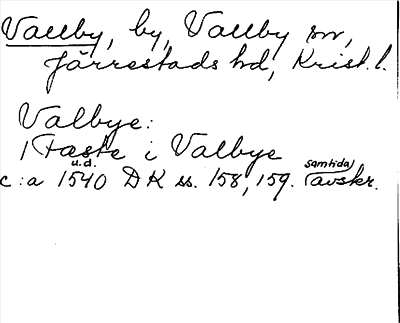 Vallby, by, Vallby sn,
Järrestads hd, Krist. l.
Valbye:
1 Fæste i Valbye
u.d.
c:a 1540 DK ss. 158, 159. (samtida) avskr.